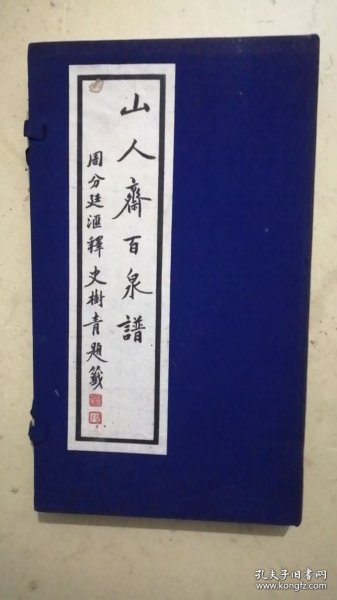 山人齋百泉譜
周分廷滙釋 史樹青題籤
孔夫子旧书网